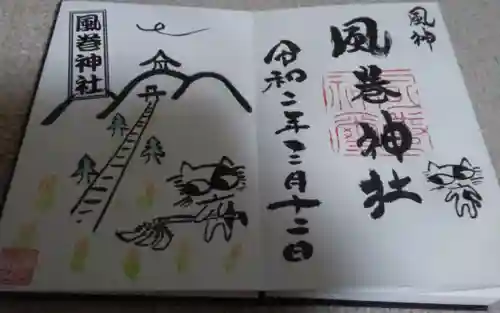 風神
風巻神社
令和二年十二月十二日
風巻神社